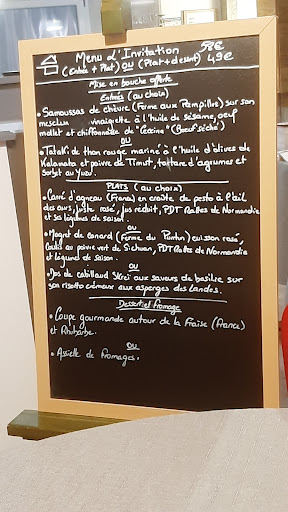 Menu L'Invitation 58€
(Entrée + Plat) OU (Plat + dessert) 49€
Mise en bouche offerte
Entrées (au choix)
• Samoussas de chèvre (Ferme aux Pampilles) sur son
mesclun vinaigrette à l'huile de sésame, oeuf
mollet et chiffonnade de "Cecina" (Boeuf séché)
OU
• Tataki de thon rouge mariné à l'huile d'olives de
Kalamata et poivre de Timut, tartare d'agrumes et
sorbet au Yuzu.
PLATS (au choix)
• Carré d'agneau (France) en croûte de pesto à l'ail
des ours, juste rosé, jus réduit, PDT Rattes de Normandie
et ses légumes de saison.
OU
• Magret de canard (Ferme du Pontun) cuisson rosé,
Coulis au poivre vert de Sichuan, PDT Rattes de Normandie
et légumes de saison.
OU
• Dos de cabillaud Skrei aux saveurs de basilic sur
son risotto crémeux aux asperges des Landes.
Dessert et fromage
• Coupe gourmande autour de la Fraise (France)
et Rhubarbe.
OU
• Assiette de fromages.